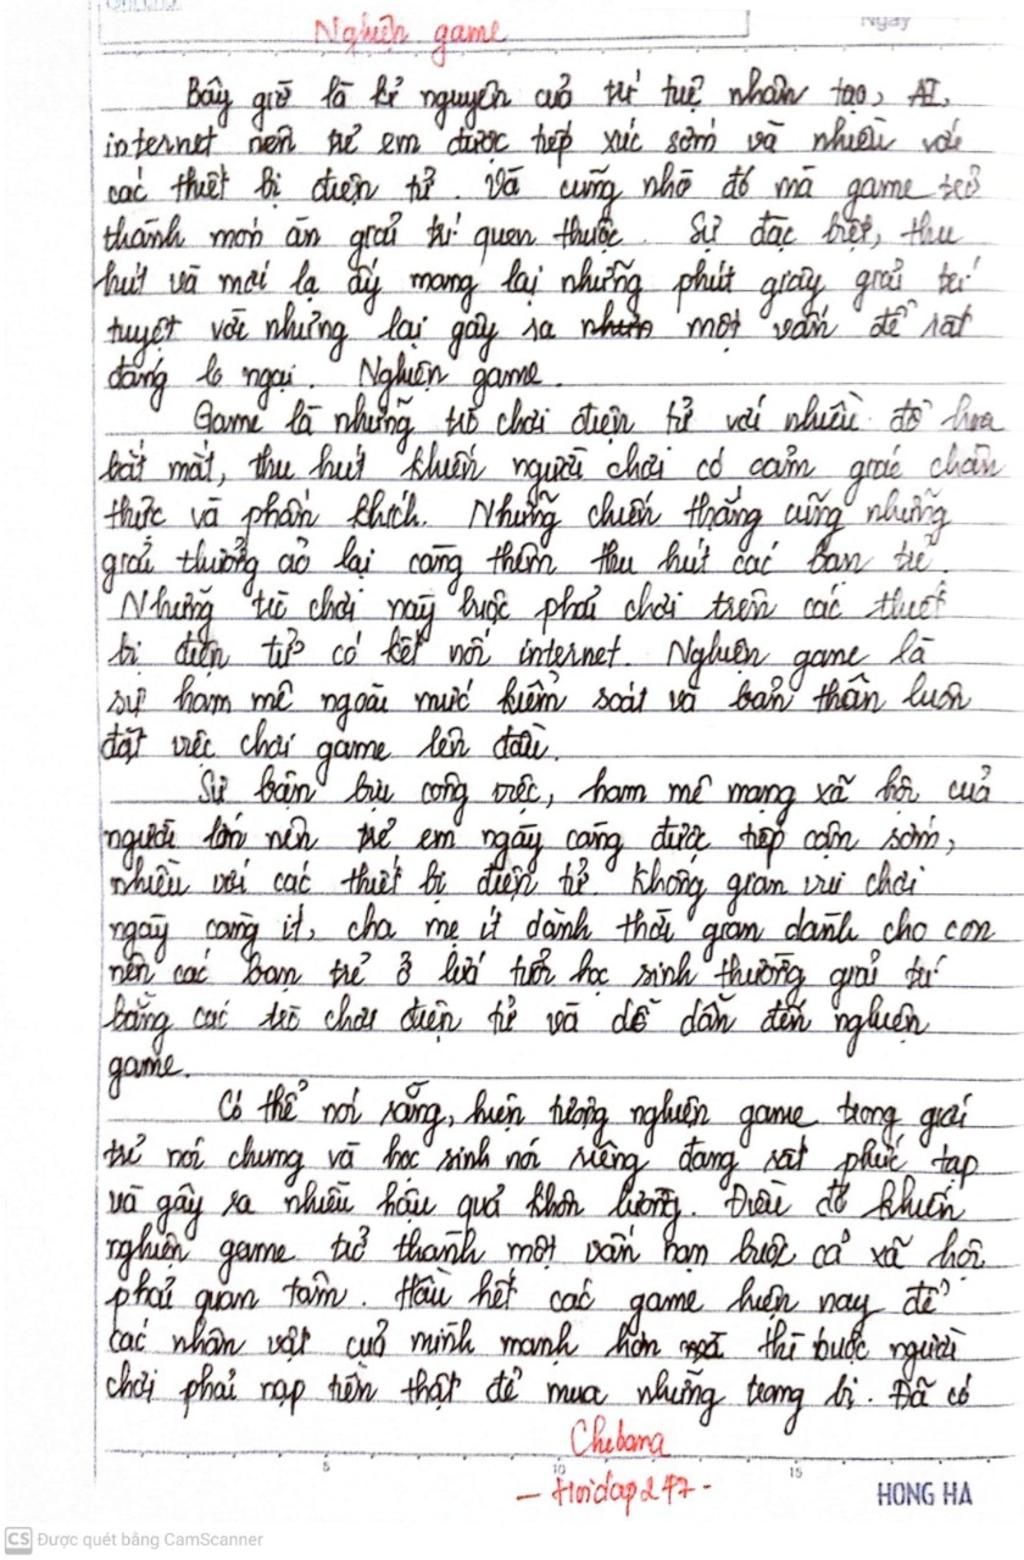 Ngày
Nghiện game
Bây giờ là kỉ nguyên của trí tuệ nhân tạo, AI,
internet nên trẻ em được tiếp xúc sớm và nhiều với
các thiết bị điện tử. Và cũng nhờ đó mà game trở
thành món ăn giải trí quen thuộc. Sự đặc biệt, thu
hút và mới lạ ấy mang lại những phút giây giải trí
tuyệt vời nhưng lại gây ra một vấn đề rất
đáng lo ngại. Nghiện game.
Game là những trò chơi điện tử với nhiều đồ họa
bắt mắt, thu hút khiến người chơi có cảm giác chân
thực và phấn khích. Những chiến thắng cùng những
giải thưởng ảo lại càng thêm thu hút các bạn trẻ.
Những trò chơi này buộc phải chơi trên các thiết
bị điện tử có kết nối internet. Nghiện game là
sự ham mê ngoài mức kiểm soát và bản thân luôn
đặt việc chơi game lên đầu.
Sự bận bịu công việc, ham mê mạng xã hội của
người lớn nên trẻ em ngày càng được tiếp cận sớm,
nhiều với các thiết bị điện tử. Không gian vui chơi
ngày càng ít, cha mẹ ít dành thời gian dành cho con
nên các bạn trẻ ở lứa tuổi học sinh thường giải trí
bằng các trò chơi điện tử và dễ dẫn đến nghiện
game.
Có thể nói rằng, hiện tượng nghiện game trong giới
trẻ nói chung và học sinh nói riêng đang rất phức tạp
và gây ra nhiều hậu quả khôn lường. Điều đó khiến
nghiện game trở thành một vấn nạn buộc cả xã hội
phải quan tâm. Hầu hết các game hiện nay để
các nhân vật của mình mạnh hơn thì buộc người
chơi phải nạp tiền thật để mua những trang bị. Đã có
Chebana
5 10 15
- Hoidap247 -
HONG HA
CS Được quét bằng CamScanner